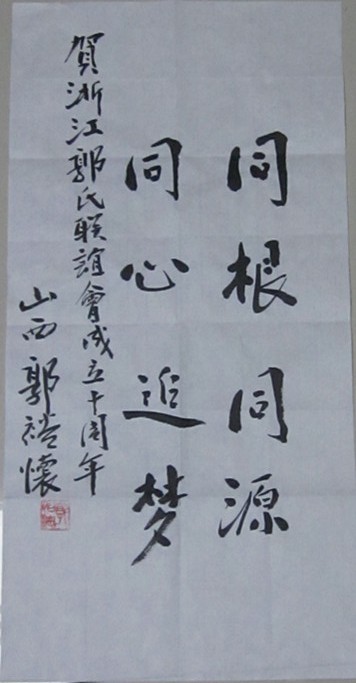 同根同源
同心追梦
賀浙江郭氏联誼會成立十周年
山西郭禮懷